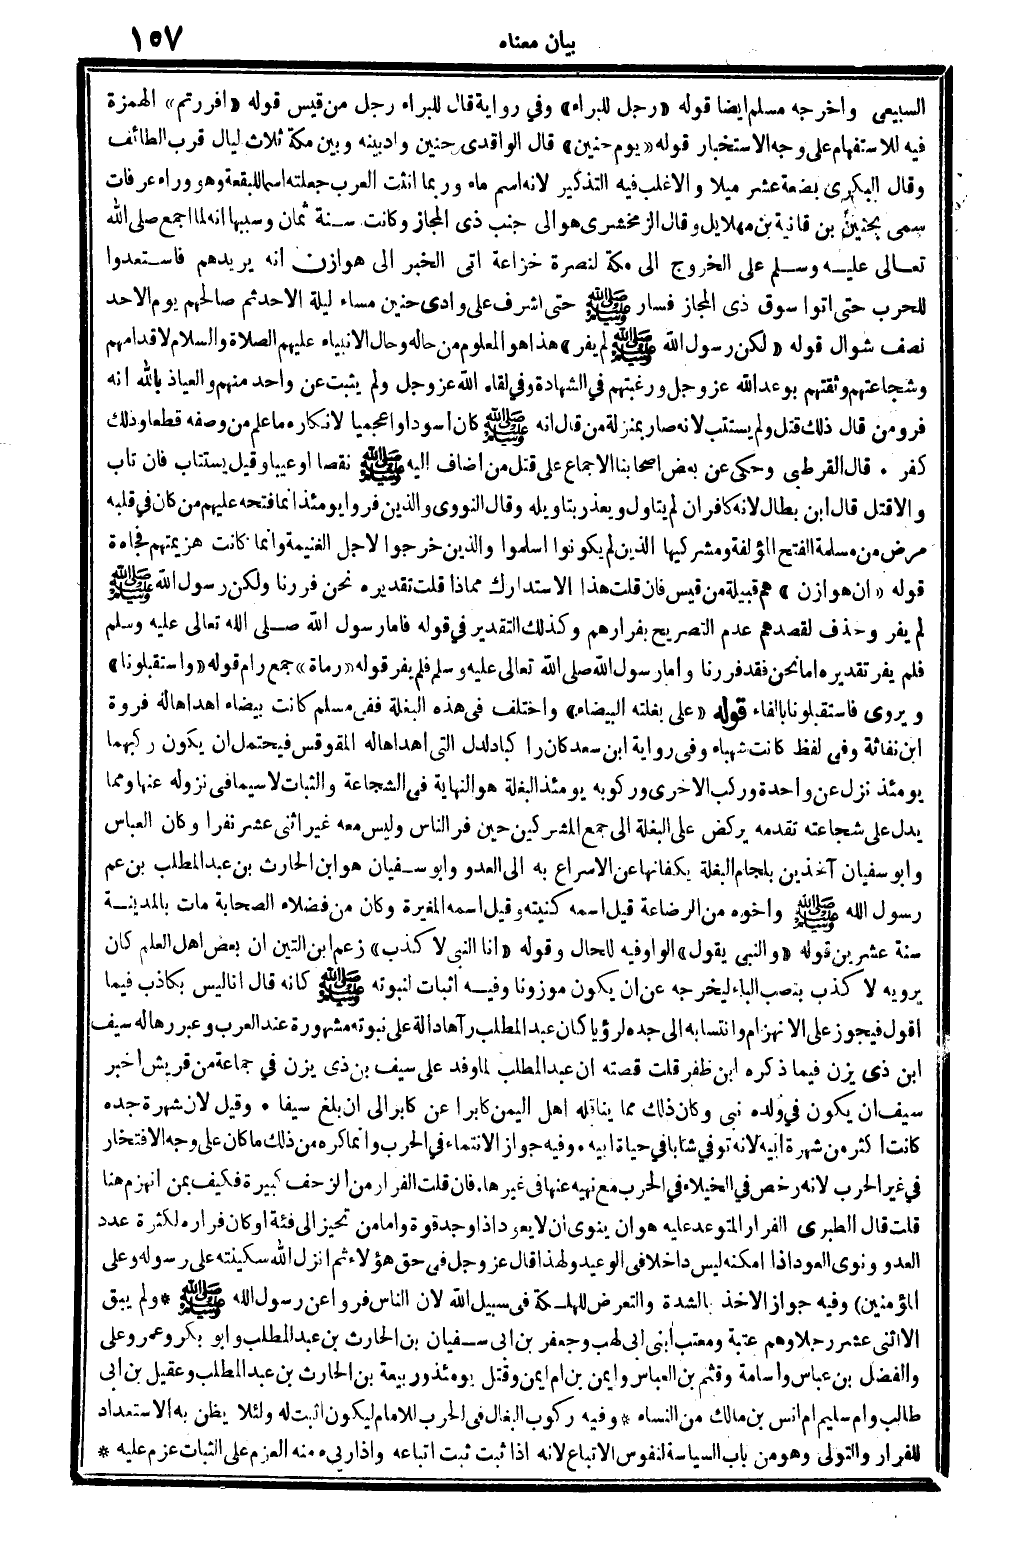 بيان معناه ١٥٧
السبيعى واخرجه مسلم ايضا قوله «رجل للبراء» وفي رواية قال للبراء رجل من قيس قوله «افررتم» الهمزة
فيه للاستفهام على وجه الاستخبار قوله «يوم حنين» قال الواقدى حنين واد بينه وبين مكة ثلاث ليال قرب الطائف
وقال البكرى بضعة عشر ميلا والاغلب فيه التذكير لانه اسم ماء وربما انثت العرب جعلته اسما للبقعة وهو وراء عرفات
سمى بحنين بن قانية بن مهلايل وقال الزمخشرى هو الى جنب ذى المجاز وكانت سنة ثمان وسببها انه لما اجمع صلى الله
تعالى عليه وسلم على الخروج الى مكة لنصرة خزاعة اتى الخبر الى هوازن انه يريدهم فاستعدوا
للحرب حتى اتوا سوق ذى المجاز فسار ﷺ حتى اشرف على وادى حنين مساء ليلة الاحد ثم صالحهم يوم الاحد
نصف شوال قوله «لكن رسول الله ﷺ لم يفر» هذا هو المعلوم من حاله وحال الانبياء عليهم الصلاة والسلام لاقدامهم
وشجاعتهم وثقتهم بوعد الله عز وجل ورغبتهم في الشهادة وفي لقاء الله عز وجل ولم يثبت عن واحد منهم والعياذ بالله انه
فر ومن قال ذلك قتل ولم يستتب لانه صار بمنزلة من قال انه ﷺ كان أسود او اعجميا لانكاره ما علم من وصفه قطعا وذلك
كفر • قال القرطبى وحكى عن بعض اصحابنا الاجماع على قتل من اضاف اليه ﷺ نقصا او عيبا وقيل يستتاب فان تاب
والاقتل قال ابن بطال لانه كافر ان لم يتاول ويعذر بتاويله وقال النووى والذين فروا يومئذ انما فتحه عليهم من كان في قلبه
مرض من مسلمة الفتح المؤلفة ومشركيها الذين لم يكونوا اسلموا والذين خرجوا لاجل الغنيمة وانما كانت هزيمتهم فجاءة
قوله «ان هوازن» هم قبيلة من قيس فان قلت هذا الاستدراك مماذا قلت تقديره نحن فررنا ولكن رسول الله ﷺ
لم يفر وحذف لقصدهم عدم التصريح بفرارهم وكذلك التقدير في قوله فاما رسول الله صلى الله تعالى عليه وسلم
فلم يفر تقديره اما نحن فقد فررنا واما رسول الله صلى الله تعالى عليه وسلم فلم يفر قوله «رماة» جمع رام قوله «واستقبلونا»
ويروى فاستقبلونا بالفاء قوله «على بغلته البيضاء» واختلف فى هذه البغلة ففى مسلم كانت بيضاء اهداها له فروة
ابن نفاثة وفى لفظ كانت شهباء وفى رواية ابن سعد كان را كبا دلدل التى اهداها له المقوقس فيحتمل ان يكون ركبهما
يومئذ نزل عن واحدة وركب الاخرى وركوبه يومئذ البغلة هو النهاية فى الشجاعة والثبات لا سيما فى نزوله عنها ومما
يدل على شجاعته تقدمه يركض على البغلة الى جمع المشركين حين فر الناس وليس معه غير اثنى عشر نفرا وكان العباس
وابو سفيان آخذين بلجام البغلة يكفانها عن الاسراع به الى العدو وابو سفيان هو ابن الحارث بن عبد المطلب بن عم
رسول الله ﷺ واخوه من الرضاعة قيل اسمه كنيته وقيل اسمه المغيرة وكان من فضلاء الصحابة مات بالمدينة
سنة عشرين قوله «والنبى يقول» الواو فيه للحال وقوله «انا النبى لا كذب» زعم ابن التين ان بعض اهل العلم كان
يرويه لا كذب بنصب الباء ليخرجه عن ان يكون موزونا وفيه اثبات لنبوته ﷺ كانه قال انا ليس بكاذب فيما
اقول فيجوز على الانهزام وانتسابه الى جده لرؤيا كان عبد المطلب رآها دالة على نبوته مشهورة عند العرب وعبرها له سيف
ابن ذى يزن فيما ذكره ابن ظفر قلت قصته ان عبد المطلب لما وفد على سيف بن ذى يزن في جماعة من قريش اخبر
سيف ان يكون في ولده نبى وكان ذلك مما يناقله اهل اليمن كابرا عن كابر الى ان بلغ سيفا • وقيل لان شهرة جده
كانت اكثر من شهرة أبيه لانه توفي شابا في حياة ابيه • وفيه جواز الانتماء في الحرب وانما كره من ذلك ما كان على وجه الافتخار
في غير الحرب لانه رخص في الخيلاء في الحرب مع نهيه عنها فى غيرها. فان قلت الفرار من الزحف كبيرة فكيف بمن انهزم هنا
قلت قال الطبرى الفرار المتوعد عليه هو ان ينوى ان لا يعود اذا وجد قوة واما من تحيز الى فئة او كان فراره لكثرة عدد
العدو ونوى العود اذا امكنه ليس داخلا فى الوعيد ولهذا قال عز وجل فى حق هؤلاء ثم انزل الله سكينته على رسوله وعلى
المؤمنين) وفيه جواز الاخذ بالشدة والتعرض للهلكة فى سبيل الله لان الناس فروا عن رسول الله ﷺ * ولم يبق
الا اثنى عشر رجلا وهم عتبة ومعتب أبنى ابى لهب وجعفر بن ابى سفيان بن الحارث بن عبد المطلب وابو بكر وعمر وعلى
والفضل بن عباس وأسامة وقثم بن العباس وايمن بن ام ايمن وقتل يومئذ وربيعة بن الحارث بن عبد المطلب وعقيل بن ابى
طالب وام سليم ام انس بن مالك من النساء * وفيه ركوب البغال فى الحرب للامام ليكون اثبت له ولئلا يظن به الاستعداد
للفرار والتولى وهو من باب السياسة لنفوس الاتباع لانه اذا ثبت ثبت اتباعه واذا ريء منه العزم على الثبات عزم عليه *